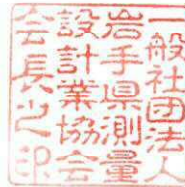 一般社団法人
岩手県測量
設計業協会
会長之印